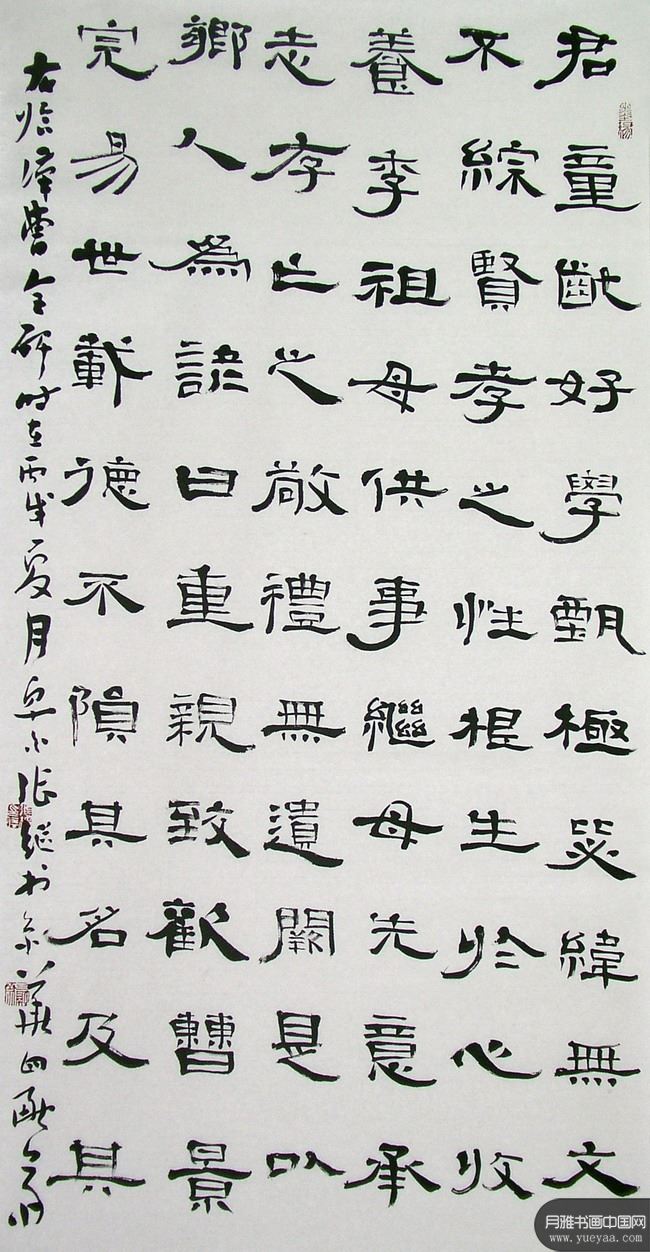 君童齔好學甄極毖緯無文
不綜賢孝之性根生於心收
養季祖母供事繼母先意承
志存亡之敬禮無遺闕是以
鄉人為諺曰重親致歡曹景
完易世載德不隕其名及其
右临漢曹全碑时在丙戌夏月张继书京華
月雅书画中国网
www.yueyaa.com